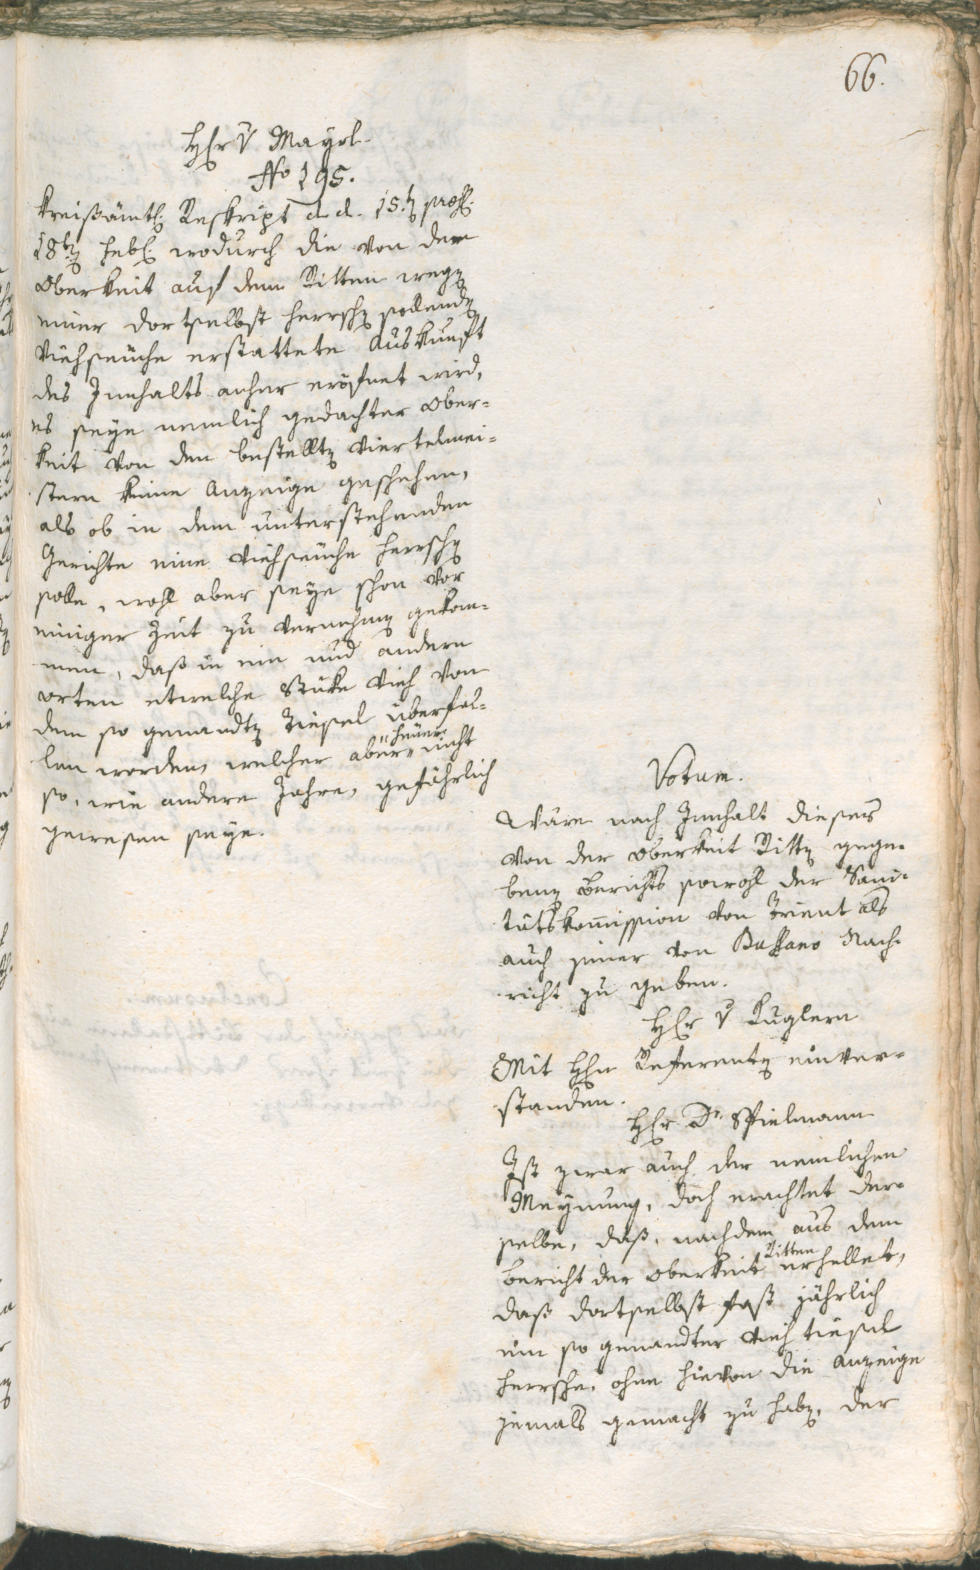 66.
Herr v Mayrl.
No 195.
Kreißämtl. Reskript d. d. 15.t praes.
18t. Febr. wodurch die von dem
Oberkeit auf dem Ritten wegen
einer dortselbst herrschen sollenden
Viehseüche erstattete Auskunft
des Innhalts anher eröfnet wird,
es seye nemlich gedachter Ober=
keit von den bestellten Viertelmei=
stern keine Anzeige geschehen,
als ob in dem unterstehenden
Gerichte eine Viehseüche herrschen
solle, wohl aber seye schon vor
einiger Zeit zu vernehmen gekom=
men, daß in ein und andern
orten etwelche Stüke Vieh von
dem so genandten Tiesel überfal=
len worden, welcher aber heüer nicht
so, wie andere Jahre, gefährlich
gewesen seye.
Votum.
Wäre nach Innhalt dieses
von der Oberkeit Ritten gege=
benen Berichts sowohl der Sani=
tätskommission von Trient als
auch jener von Bassano Nach=
richt zu geben.
Herr v Kuglern
Mit Herrn Referenten einver=
standen.
Herr Dr Spielmann
Ist zwar auch der nemlichen
Meynung, doch erachtet der=
selbe, daß, nachdem aus dem
Bericht der Oberkeit Ritten erhellet,
daß dortselbst fast jährlich
ein so genandter Viehtiesel
herrsche, ohne hievon die Anzeige
jemals gemacht zu haben, der